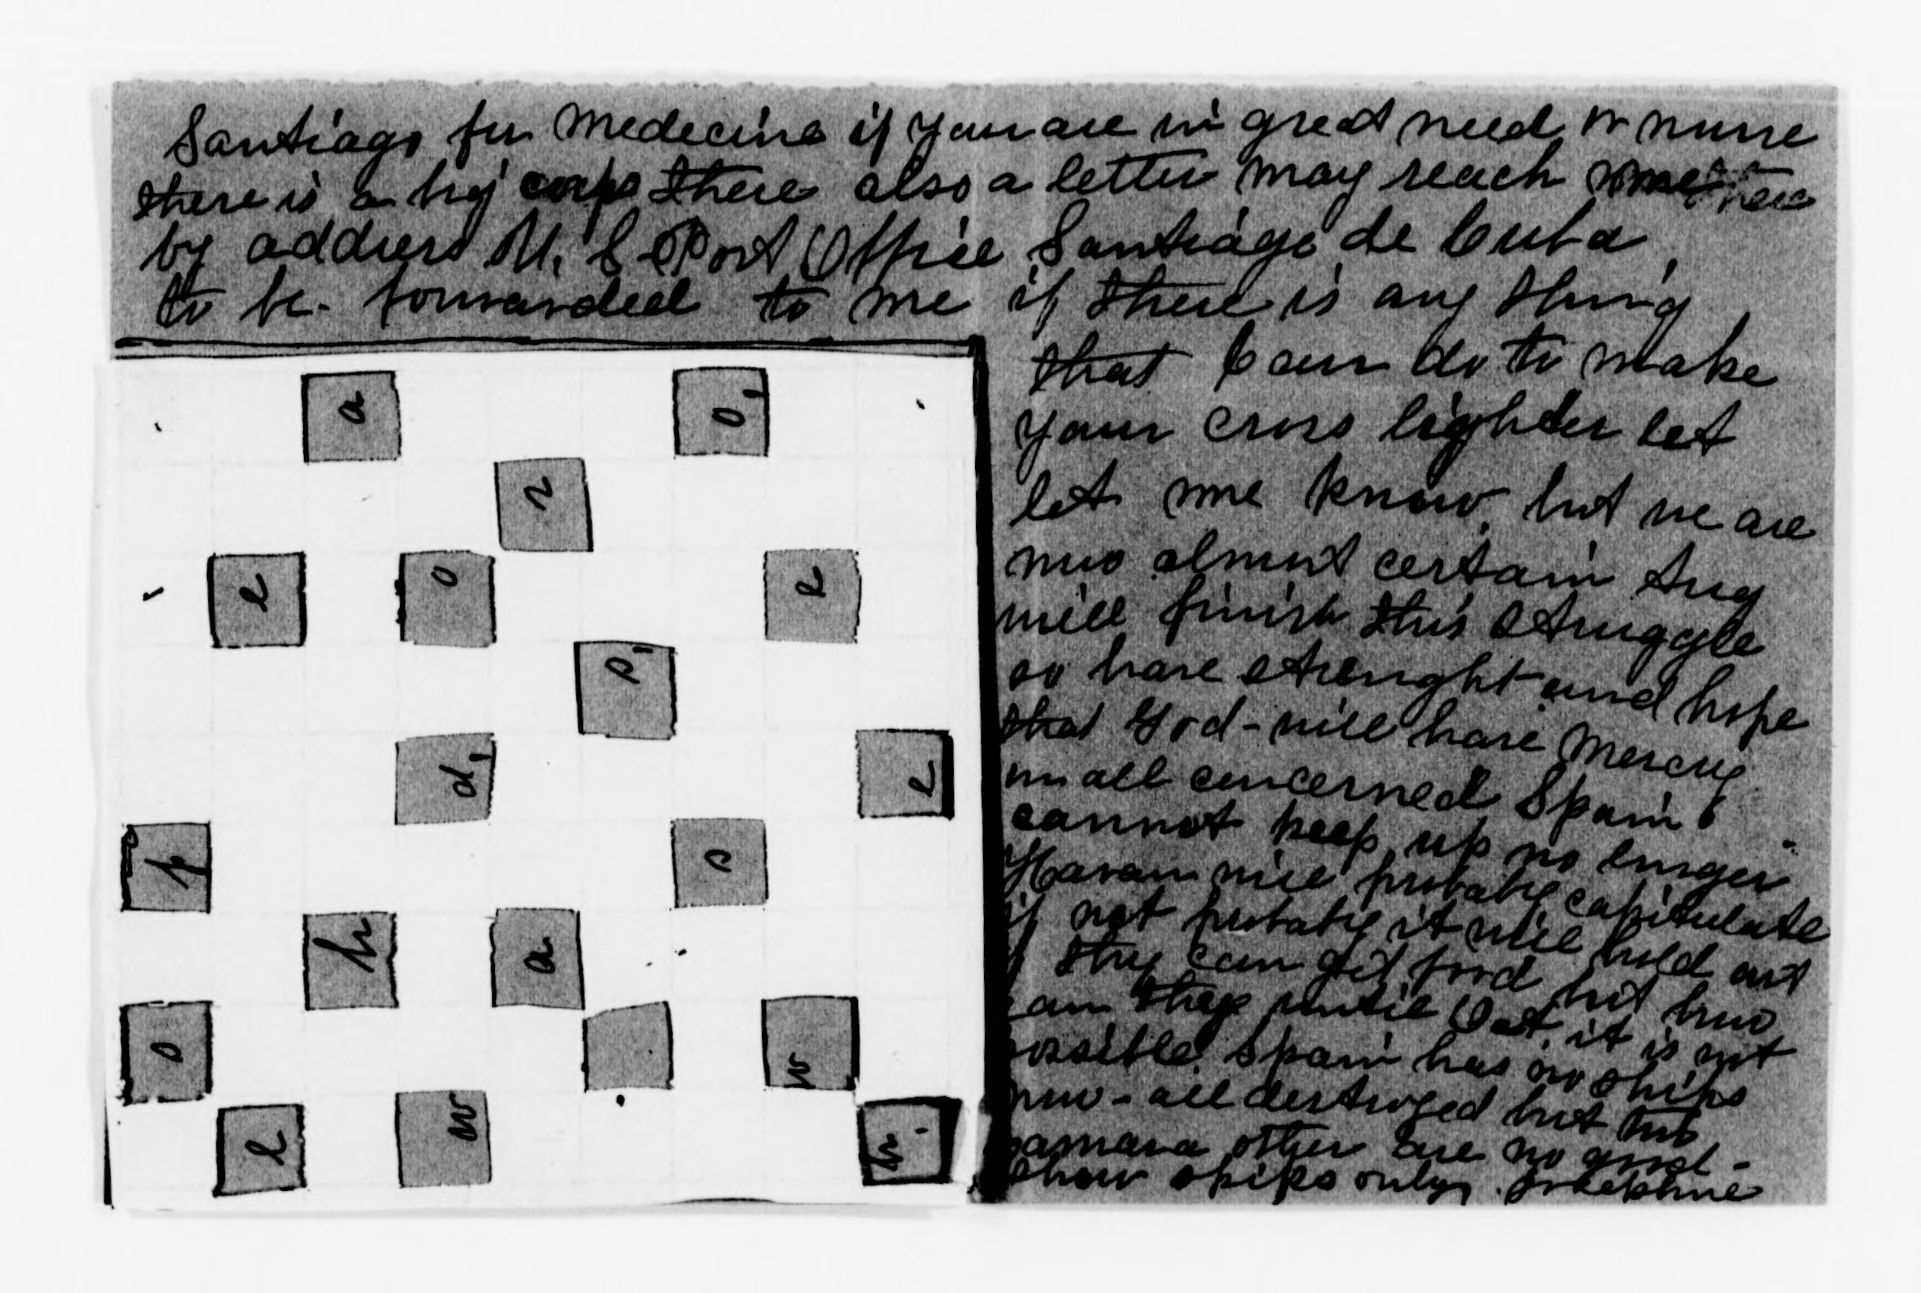 Santiago for Medecine if you are in great need or nurse
there is a big corps there also a letter may reach me
by address U.S Post Office Santiago de Cuba
to be forwarded to me if there is any thing
that I can do to make
your cross lighter let
let me know, but we are
now almost certain Aug
will finish this struggle
so have strenght and hope
that God-will have Mercy
on all concerned Spain
cannot keep up no longer
Havan will probably capitulate
if not probably it will hold out
if they can get food but how
can they until Oct, it is not
possible. Spain has no ships
now-all destroyed but
other are no good-
show ships only. Josephine
a o,
n
e o e
p,
d, e
p o
h a
o w
l w
h.